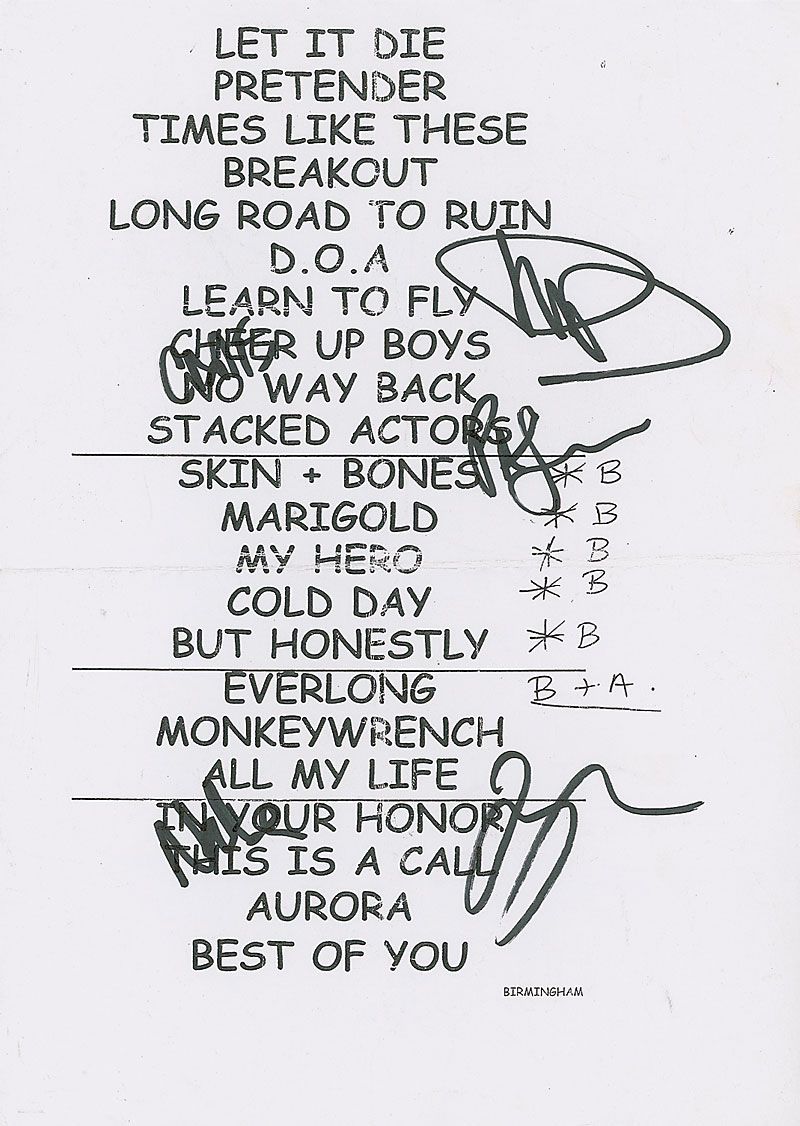 LET IT DIE
PRETENDER
TIMES LIKE THESE
BREAKOUT
LONG ROAD TO RUIN
D.O.A
LEARN TO FLY
CHEER UP BOYS
NO WAY BACK
STACKED ACTORS
SKIN + BONES * B
MARIGOLD * B
MY HERO * B
COLD DAY * B
BUT HONESTLY * B
EVERLONG B + A.
MONKEYWRENCH
ALL MY LIFE
IN YOUR HONOR
THIS IS A CALL
AURORA
BEST OF YOU
BIRMINGHAM